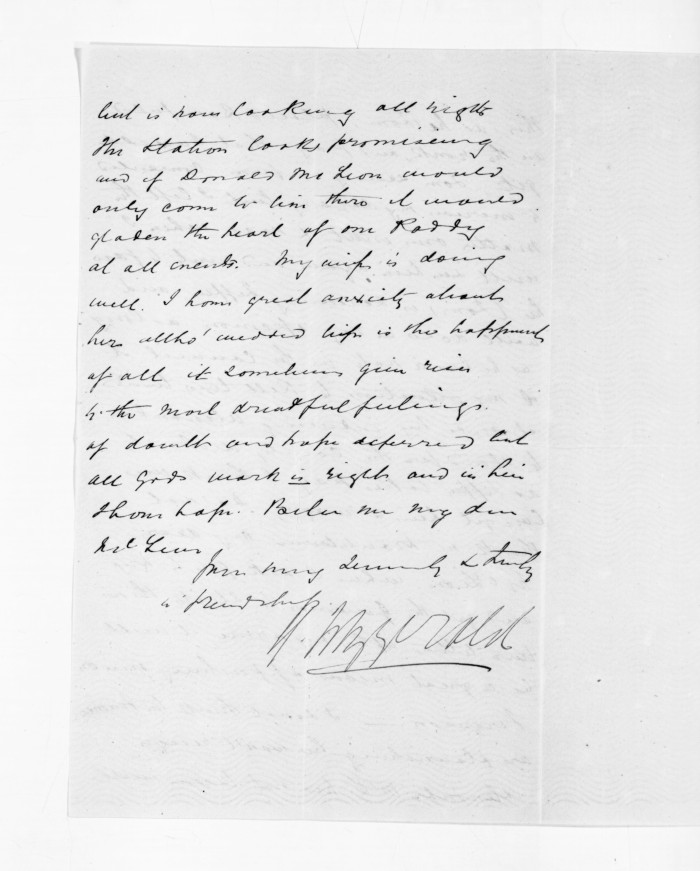 but is now looking all right
The Station looks promiseing
and if Donald McLeon would
only come to live there it would
gladen the heart of one Paddy
at all events. My wife is doing
well. I have great anxiety about
her altho' wedded life is the happiest
of all it sometimes gives rise
to the most dreadful feelings
of doubt and hope deferred but
all Gods work is right and in him
I have hope. Believe me my dear
McLean
yours very sincerely & truly
in friendship
Fitzgerald